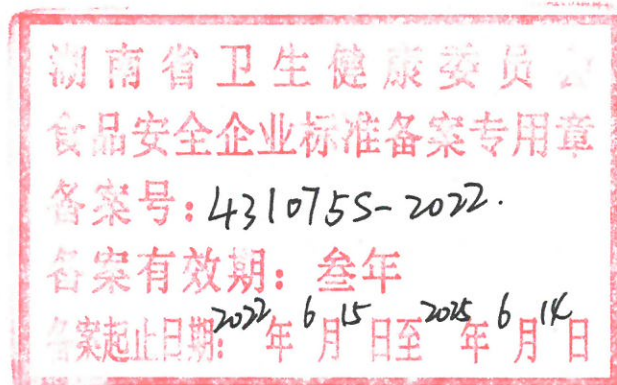 湖南省卫生健康委员会
食品安全企业标准备案专用章
备案号：431075S-2022.
备案有效期：叁年
备案起止日期：2022年6月15日至2025年6月14日